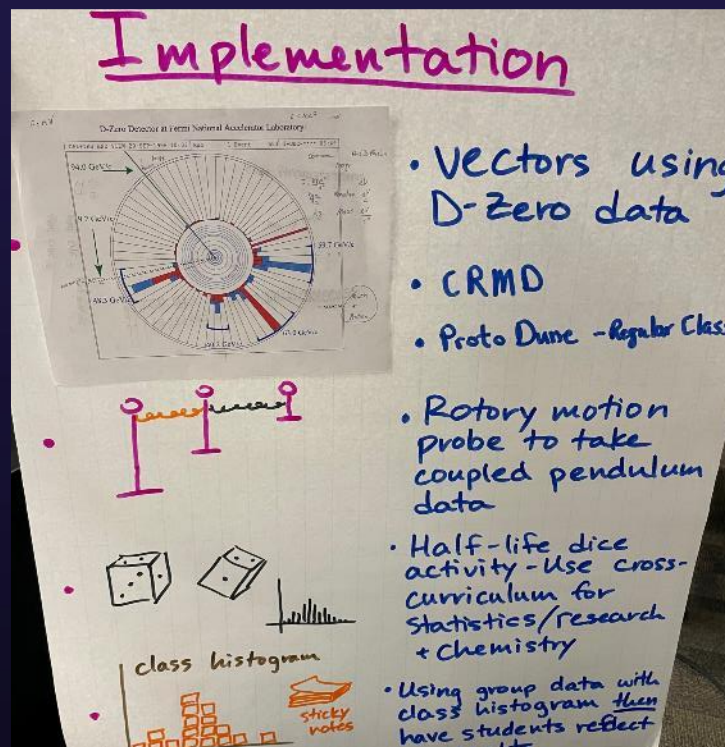 Implementation
D-Zero Detector at Fermi National Accelerator Laboratory
94.0 GeV/c
• Vectors using
D-Zero data
• CRMD
• Proto Dune - Regular Class
• Rotory motion
probe to take
coupled pendulum
data
• Half-life dice
activity - Use cross-
curriculum for
Statistics/research
+ Chemistry
class histogram
sticky
notes
• Using group data with
class histogram then
have students reflect